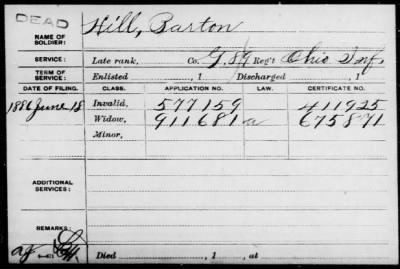 DEAD
NAME OF SOLDIER: Hill, Barton
SERVICE: Late rank, Co. G, 89 Reg't Ohio Inf.
TERM OF SERVICE: Enlisted , 1 Discharged , 1
DATE OF FILING. CLASS. APPLICATION NO. LAW. CERTIFICATE NO.
1886 June 18 Invalid, 577159 411925
Widow, 911681 a 675871
Minor,
ADDITIONAL SERVICES:
REMARKS:
Died , 1 , at